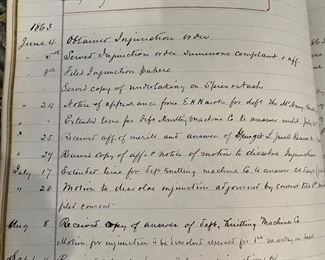 1863
June 4 Obtained Injunction order
" 5th Served Injunction order Summons complaint & aff.
" 8th Filed Injunction papers
Served copy of undertaking on
" 24 Notice of appearance from for deft. The
" Extended time for Knitting Machine Co to answer until July
" 25 Received aff. of merits and answer of
" 29 Received copy of aff. & notice of motion to dissolve Injunction
July 17 Extended time for deft Knitting Machine Co. to answer 20 days
" 20 Motion to dissolve injunction adjourned by consent
filed consent
Aug 8 Received copy of answer of deft. Knitting Machine Co
Motion for injunction to be dissolved reserved for 1st Monday in